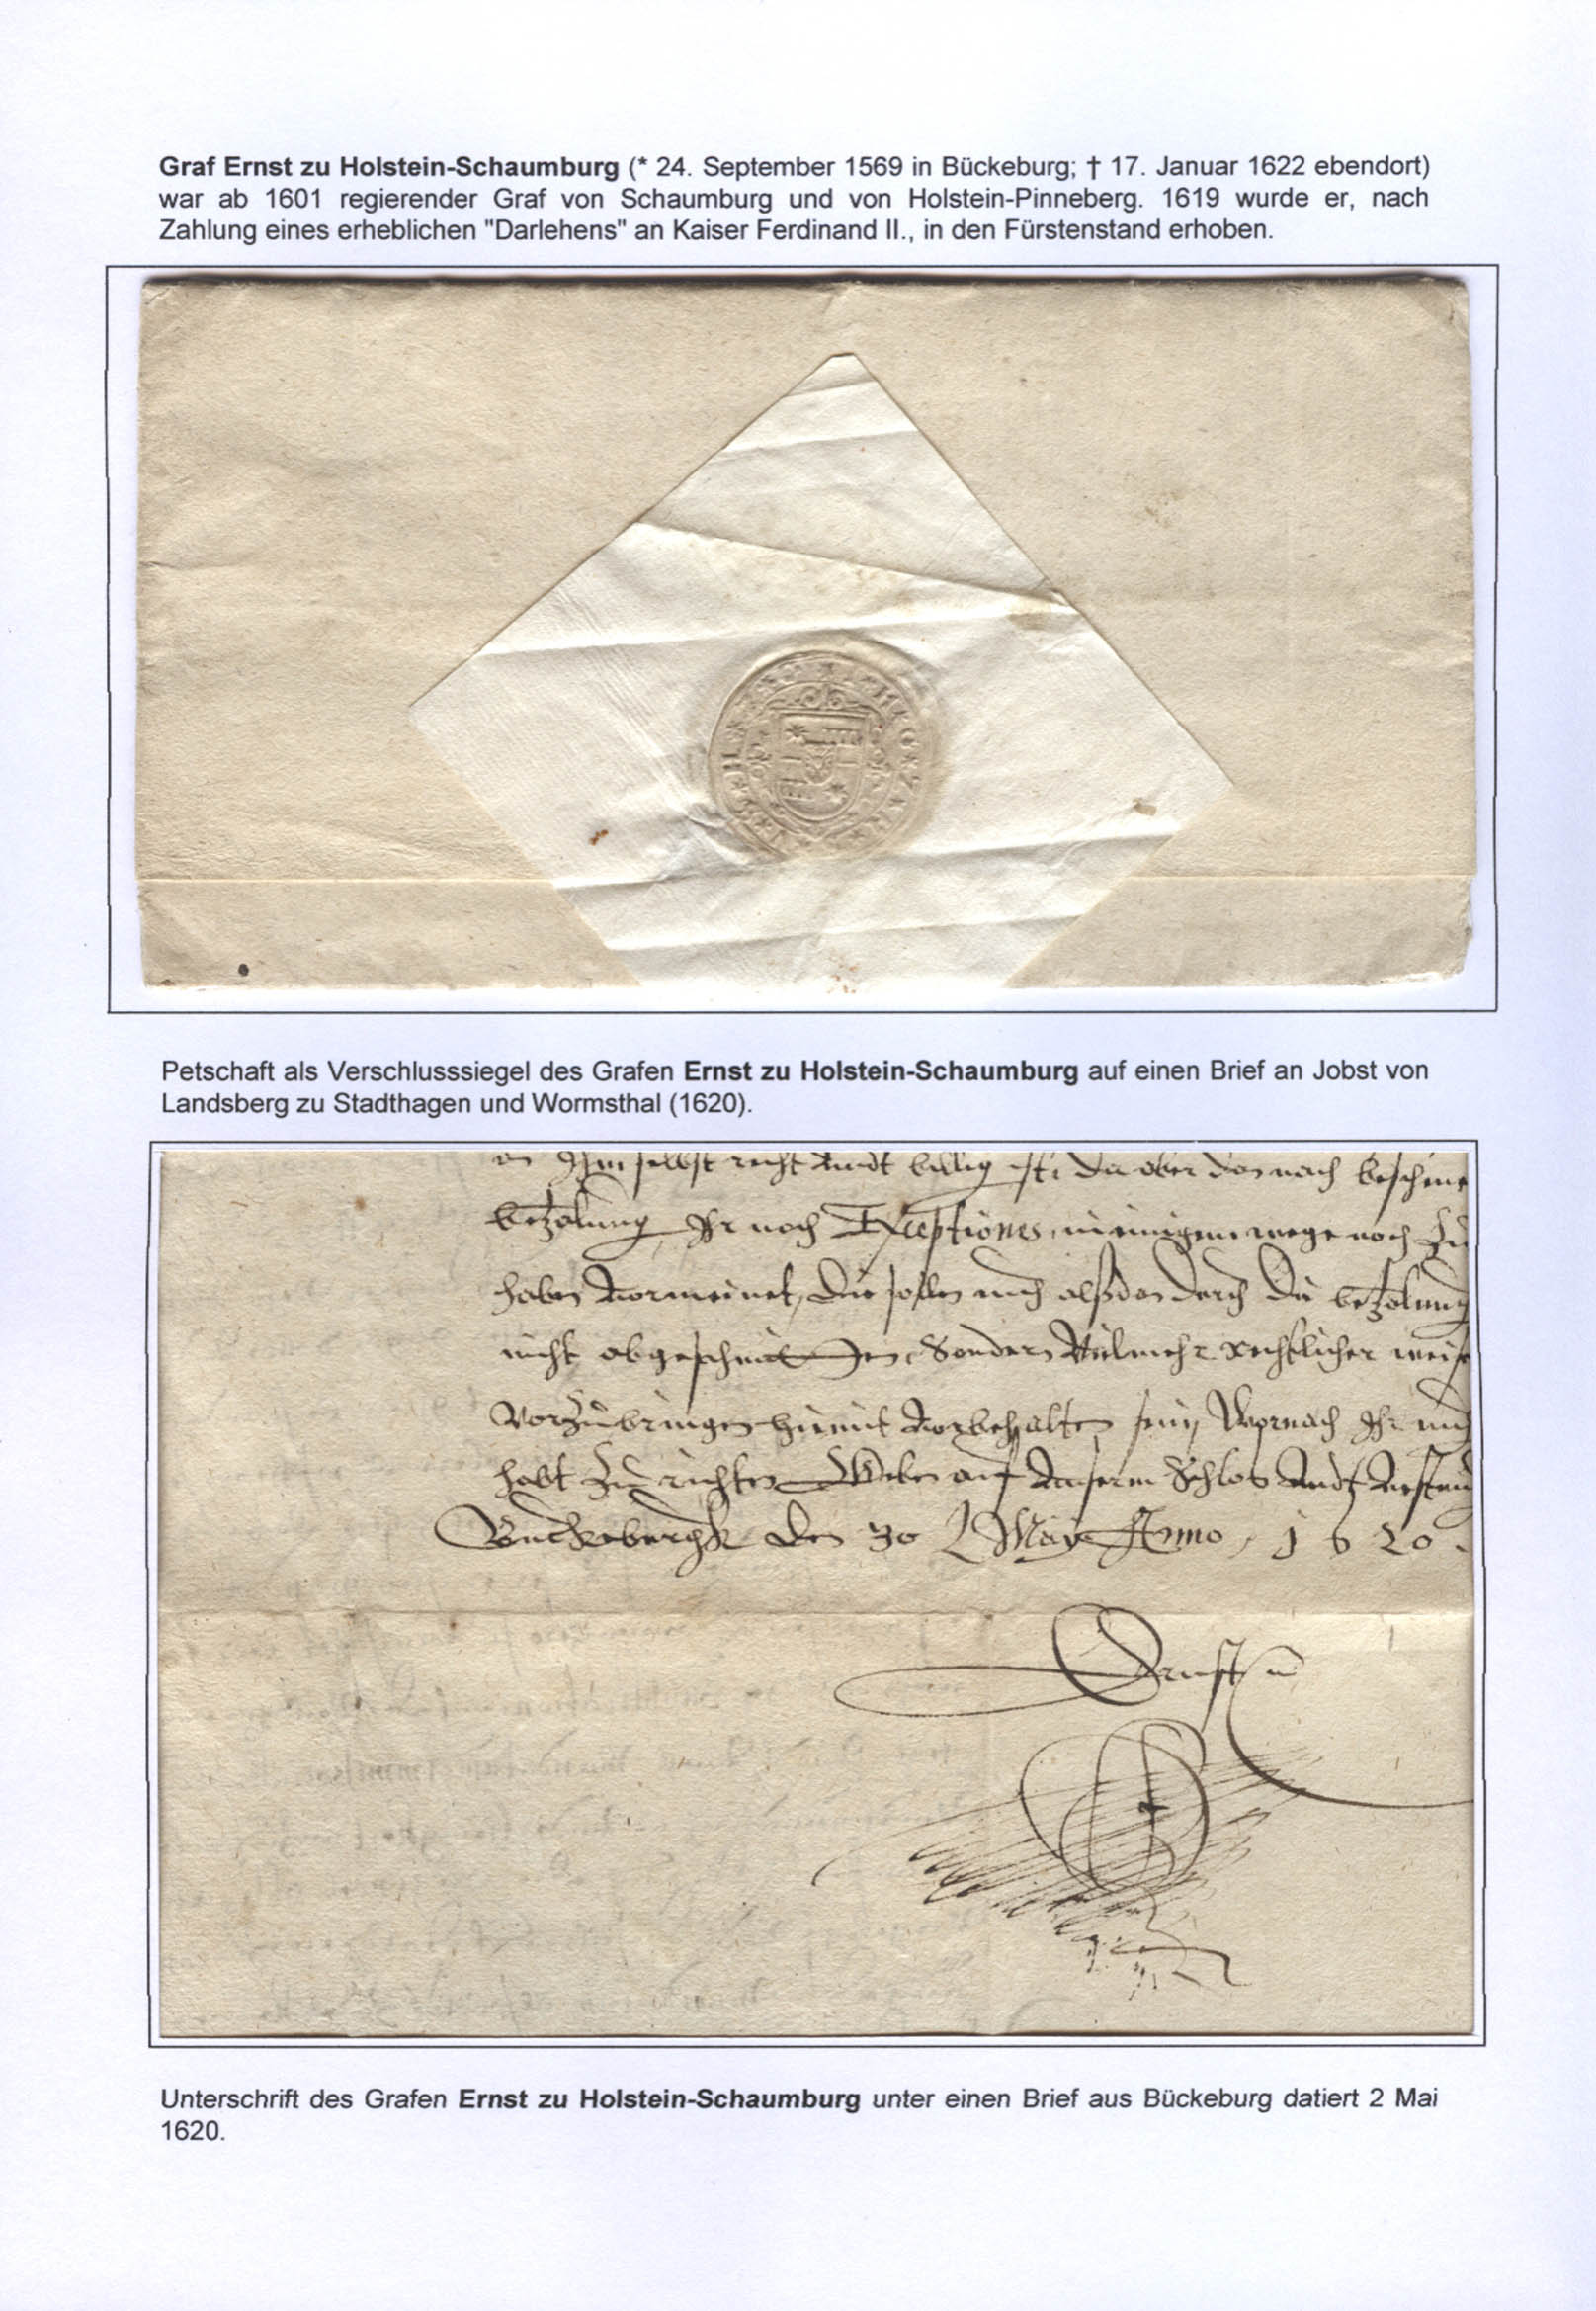 Graf Ernst zu Holstein-Schaumburg (* 24. September 1569 in Bückeburg; † 17. Januar 1622 ebendort)
war ab 1601 regierender Graf von Schaumburg und von Holstein-Pinneberg. 1619 wurde er, nach
Zahlung eines erheblichen "Darlehens" an Kaiser Ferdinand II., in den Fürstenstand erhoben.
Petschaft als Verschlusssiegel des Grafen Ernst zu Holstein-Schaumburg auf einen Brief an Jobst von
Landsberg zu Stadthagen und Wormsthal (1620).
selbst recht undt billig ist, da aber darnach
bezalung Ihr noch Exceptiones, in einigem wege noch zu
haben vormeinet, Die sollen auch alßdan durch die bezalung
nicht abgeschnitten, Sondern Vielmehr rechtlicher weise
Vorzubringen hiemit vorbehalten sein, Wornach Ihr euch
habt zu richten, Geben auf Unserm Schlos Undt
Buckeburgk den 30 May Anno, 1620.
Ernst
Unterschrift des Grafen Ernst zu Holstein-Schaumburg unter einen Brief aus Bückeburg datiert 2 Mai
1620.